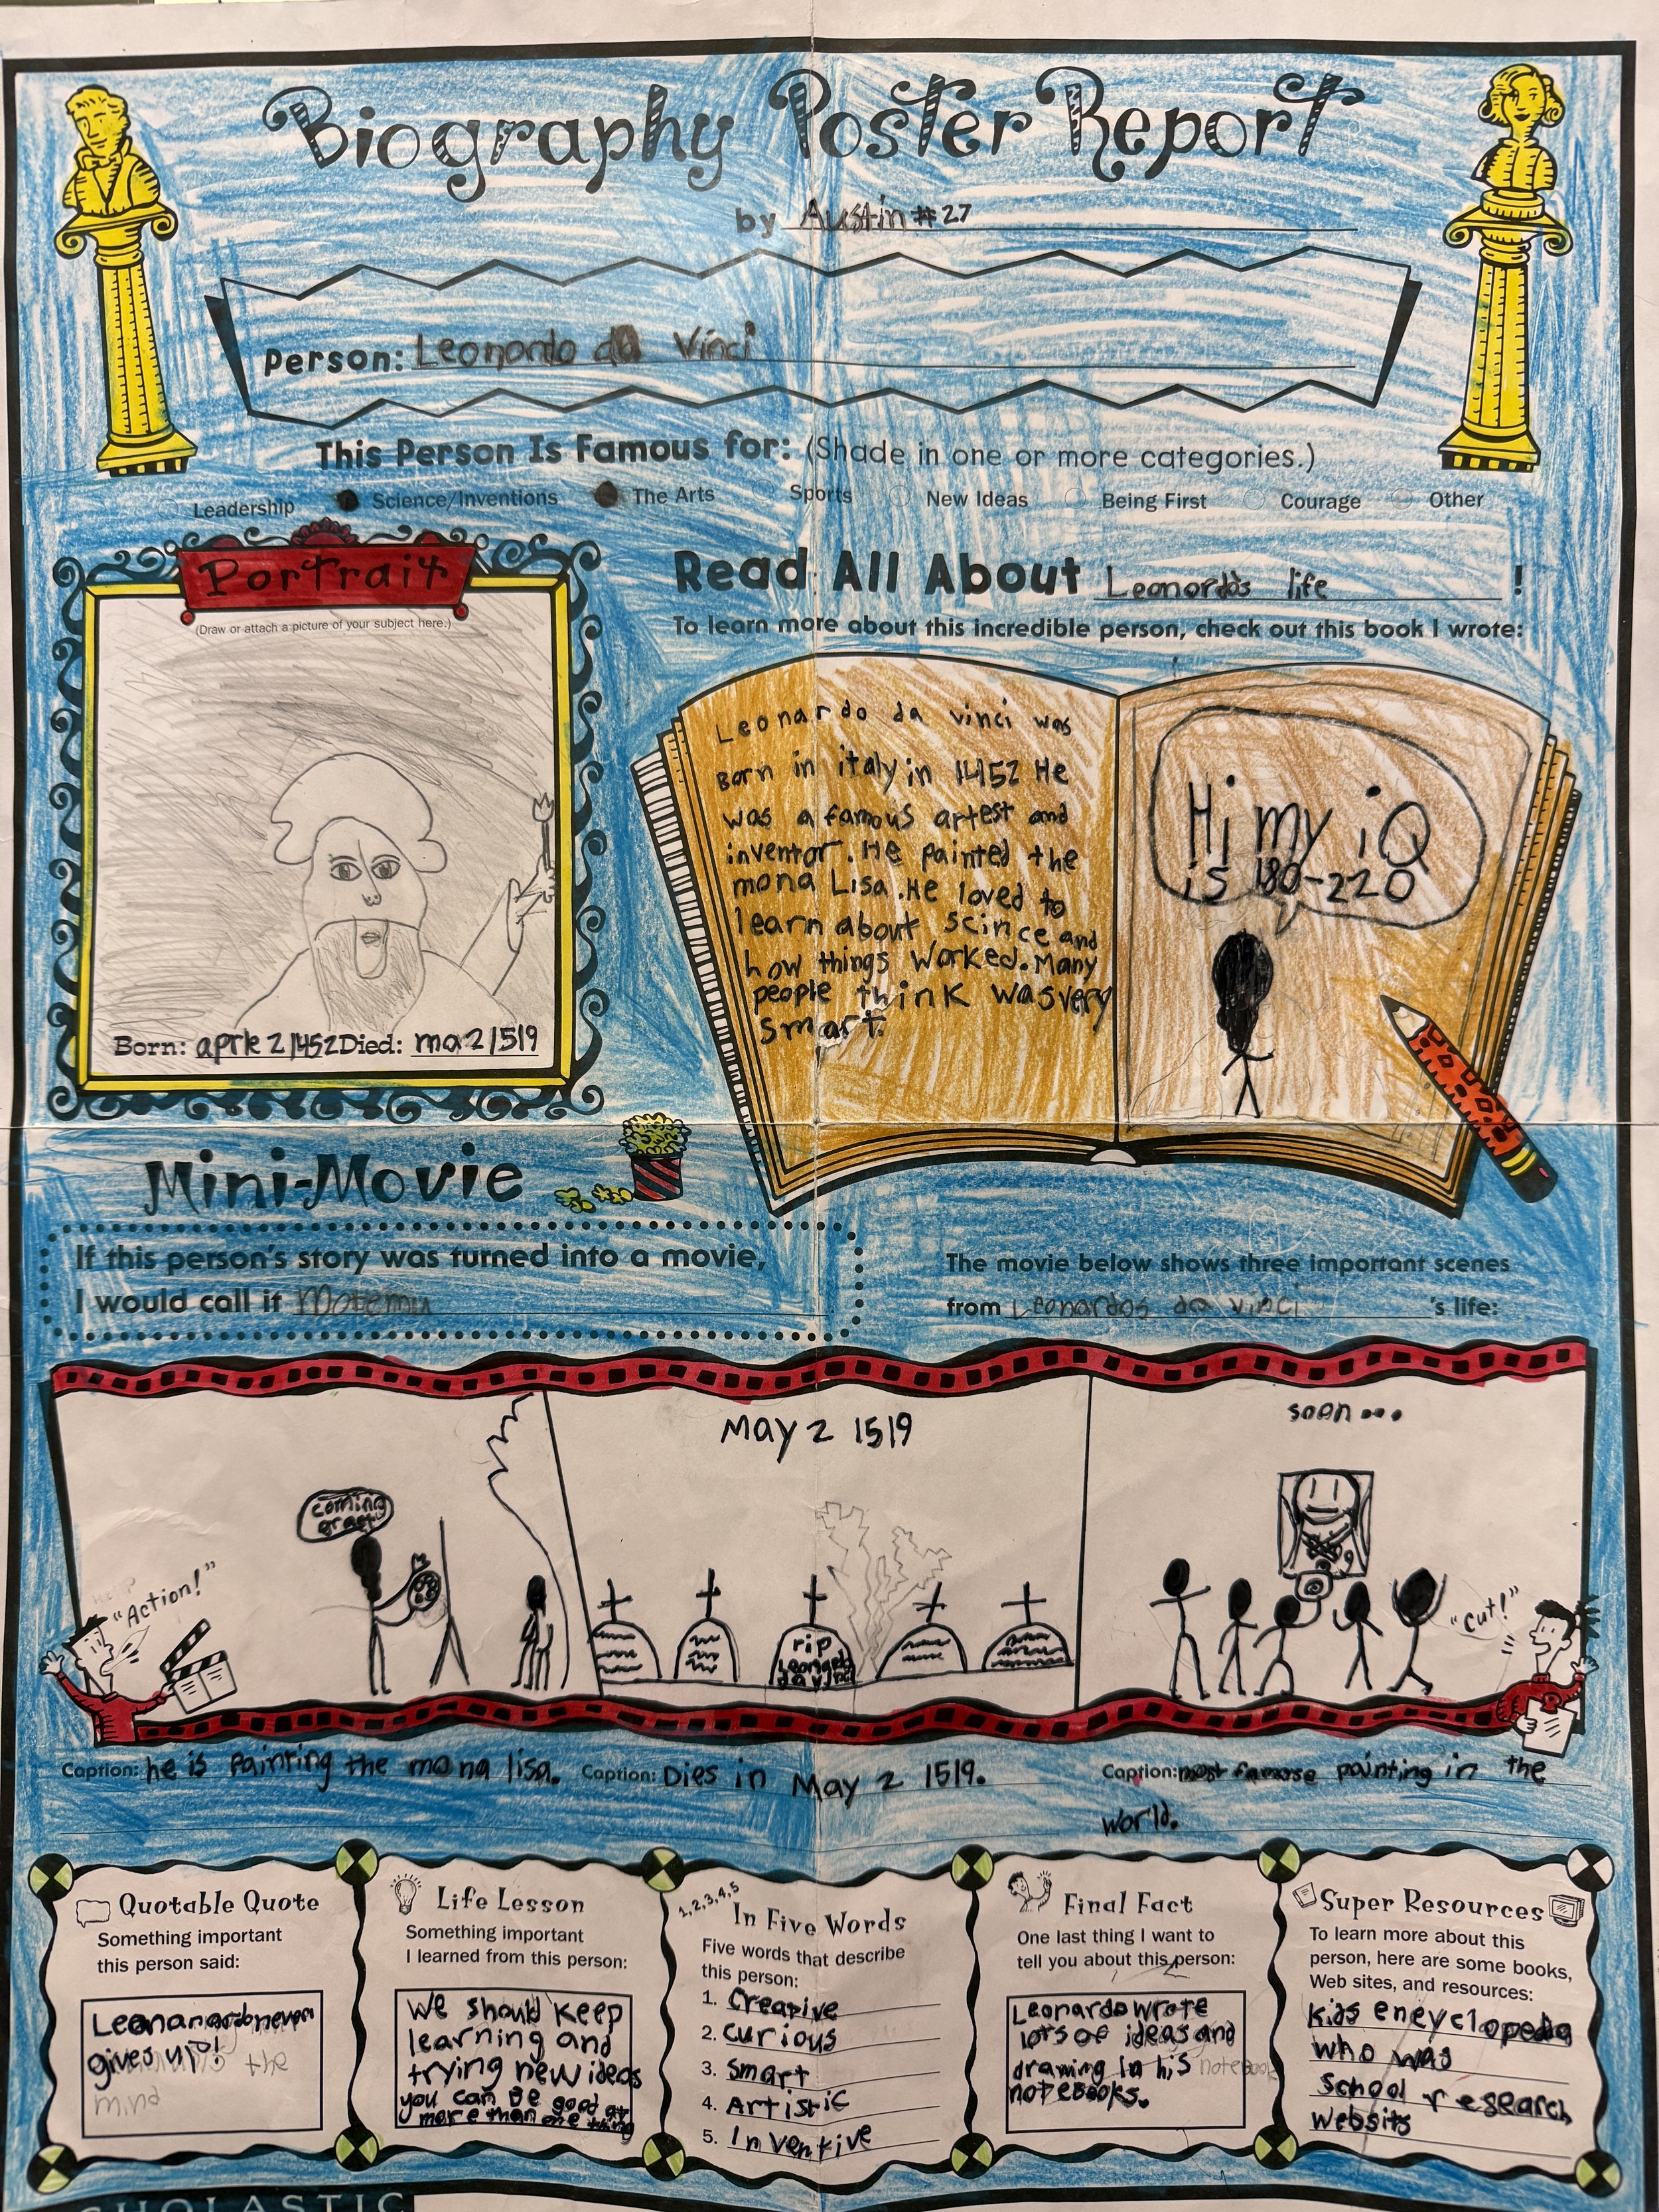 Biography Poster Report
by Austin #27
Person: Leonardo da Vinci
This Person Is Famous for: (Shade in one or more categories.)
Leadership Science/Inventions The Arts Sports New Ideas Being First Courage Other
Portrait
(Draw or attach a picture of your subject here.)
Born: aprle 2 1452 Died: ma 2 1519
Read All About Leonardo's life !
To learn more about this incredible person, check out this book I wrote:
Leonardo da vinci was
Born in italy in 1452 He
was a famous artest and
inventor. He painted the
mona Lisa. He loved to
learn about scince and
how things worked. Many
people think was very
smart.
Hi my iQ
is 180-220
Mini-Movie
If this person's story was turned into a movie,
I would call it
The movie below shows three important scenes
from Leonardos da vinci 's life:
"Action!"
coming
May 2 1519
rip
Leonardo
da vinci
soon...
"Cut!"
Caption: he is painting the mona lisa.
Caption: Dies in May 2 1519.
Caption: most famose painting in the
world.
Quotable Quote
Something important
this person said:
Leonanardo never
gives up!
the
mind
Life Lesson
Something important
I learned from this person:
We should keep
learning and
trying new ideas
you can be good at
more than one thing
1,2,3,4,5
In Five Words
Five words that describe
this person:
1. Creative
2. curious
3. smart
4. Artistic
5. Inventive
Final Fact
One last thing I want to
tell you about this person:
Leonardo wrote
lots of ideas and
drawing in his notebook
notebooks.
Super Resources
To learn more about this
person, here are some books,
Web sites, and resources:
kids encyclopedia
who was
School research
websits
SCHOLASTIC